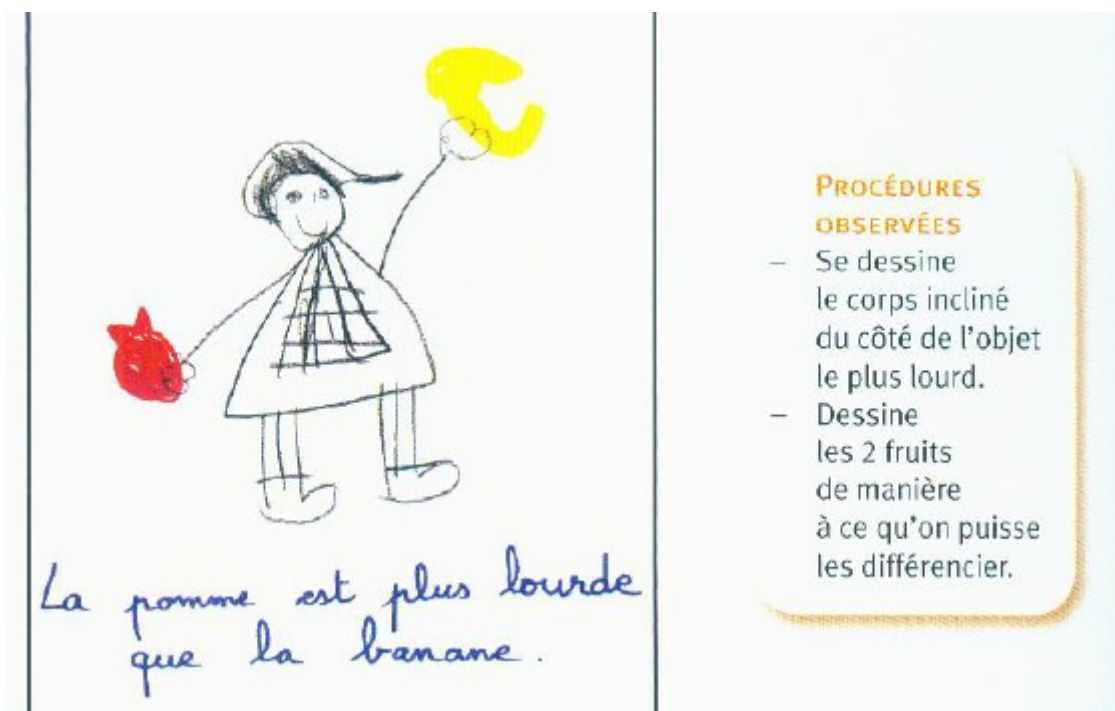 La pomme est plus lourde
que la banane.
PROCÉDURES
OBSERVÉES
– Se dessine
le corps incliné
du côté de l'objet
le plus lourd.
– Dessine
les 2 fruits
de manière
à ce qu'on puisse
les différencier.